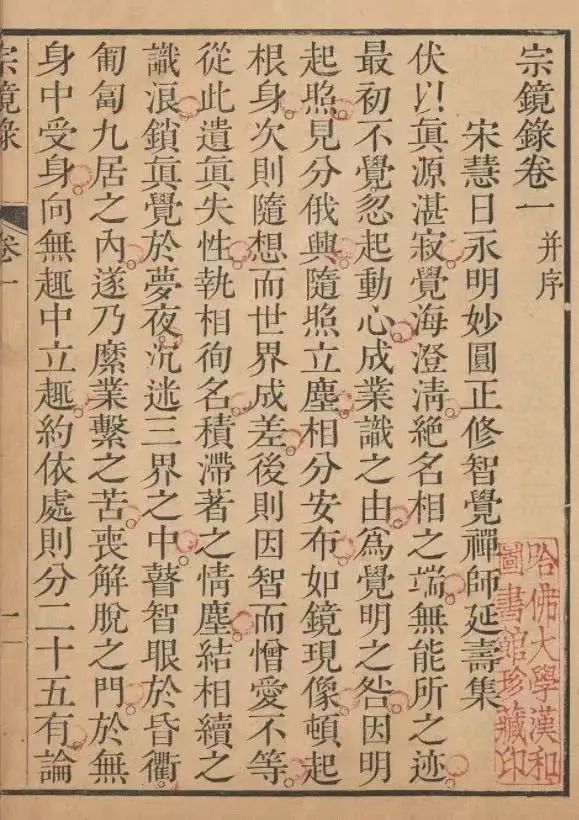 宗鏡錄卷一 并序
宋慧日永明妙圓正修智覺禪師延壽集
伏以眞源湛寂覺海澄淸。絶名相之端。無能所之迹。
最初不覺忽起動心。成業識之由。爲覺明之咎。因明
起照。見分俄興。隨照立塵。相分安布。如鏡現像。頓起
根身。次則隨想而世界成差。後則因智而憎愛不等。
從此遺眞失性。執相徇名。積滯著之情塵。結相續之
識浪。鎖眞覺於夢夜。沉迷三界之中。瞽智眼於昏衢。
匍匐九居之內。遂乃縻業繫之苦。喪解脫之門。於無
身中受身。向無趣中立趣。約依處則分二十五有。論
宗鏡錄 卷一 一
哈佛大學漢和
圖書館珍藏印